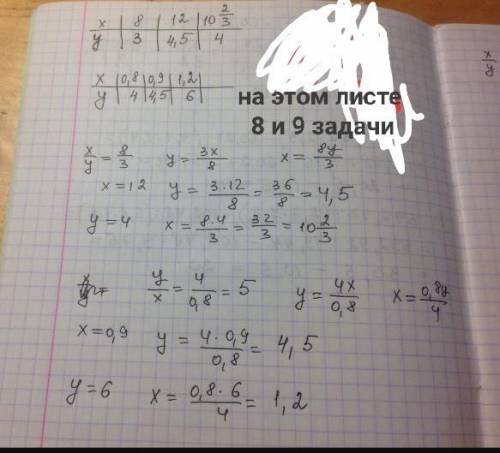 x | 8 | 12 | 10 2/3
y | 3 | 4,5 | 4
x | 0,8 | 0,9 | 1,2
y | 4 | 4,5 | 6
x/y
на этом листе
8 и 9 задачи
x/y = 8/3 y = 3x/8 x = 8y/3
x = 12 y = 3·12/8 = 36/8 = 4,5
y = 4 x = 8·4/3 = 32/3 = 10 2/3
y/x = 4/0,8 = 5 y = 4x/0,8 x = 0,8y/4
x = 0,9 y = 4·0,9/0,8 = 4,5
y = 6 x = 0,8·6/4 = 1,2